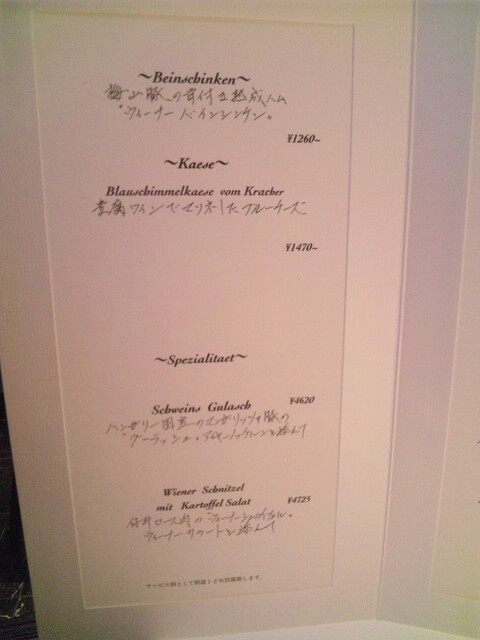 ～Beinschinken～
梅山豚の骨付き熟成ハム
"ウィーナーバインシンケン"
¥1260～
～Kaese～
Blauschimmelkaese vom Kracher
貴腐ワインでマリネしたブルーチーズ
¥1470～
～Spezialitaet～
Schweins Gulasch ¥4620
ハンガリー国宝のマンガリッツァ豚の
"グーラッシュ" を添えて
Wiener Schnitzel
mit Kartoffel Salat ¥4725
仔牛ロース肉の"ウィーナーシュニッツェル"
ウィーナーサラートを添えて
サービス料として別途12%頂戴致します。